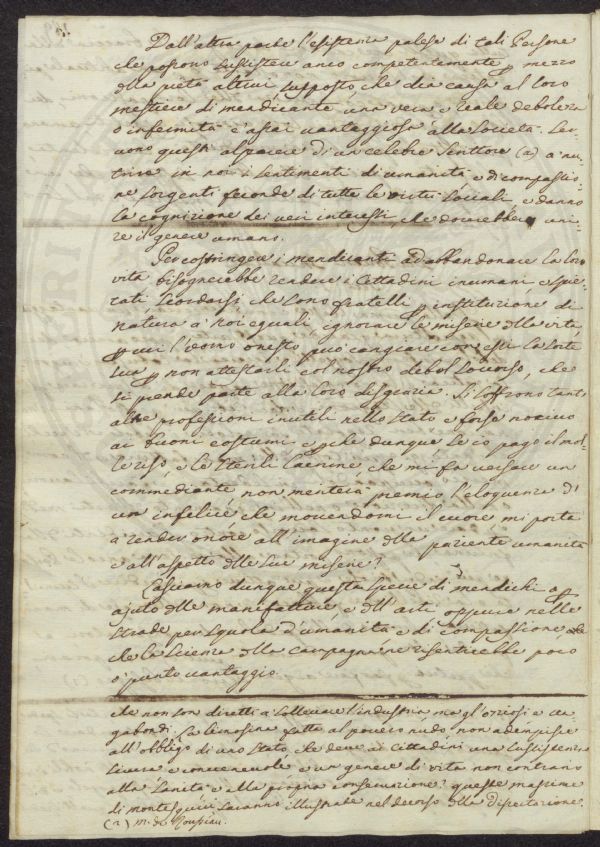 Dall'altra parte l'esistenza palese di tali Persone
che possono sussistere anco competentemente p mezzo
dlla pietà altrui supposto che dia causa al loro
mestiere di mendicante una vera e reale debolezza
o infermità è assai vantaggiosa alla Società. Ser-
vono questi al parere d'un celebre Scrittore (a) a nu-
trire in noi i sentimenti di umanità e di compassio-
ne sorgenti feconde di tutte le virtù sociali, e danno
la cognizione dei veri interessi, che dovrebbero uni-
re il genere umano.
Per costringere i mendicanti ad abbandonare la loro
vita bisognerebbe rendere i Cittadini inumani e spie-
tati scordarsi che sono fratelli p instituzione di
natura a noi eguali, ignorare le miserie dlla vita,
p cui l'uomo onesto può cangiare con essi la sorte
sua p non attestarli col nostro debol soccorso, che
si prende parte alla loro disgrazia. Si soffrono tante
altre professioni inutili nello Stato e forse nocive
ai buoni costumi e pche dunque se io pago il mol-
le riso, e le sterili lacrime che mi fa versare un
commediante non meriterà premio l'eloquenza d'
un infelice che movendomi il cuore mi porta
a render onore all'imagine dlla paziente umanità
e all'aspetto dlle sue miserie?
Lasciamo dunque questa specie di mendichi p
ajuto dlle manifatture, e dll'arti oppure nelle
strade per squola d'umanità e di compassione
che la Scienza dlla campagna ne risentirebbe poco
o punto vantaggio.
che non son diretti a sollevare l'industria, ma gl'oziosi e va-
gabondi. La limosina fatta al povero nudo, non adempisce
all'obbligo di uno Stato, che deve ai Cittadini una sussistenza
sicura e convenevole e un genere di vita non contrario
alla Sanità e alla propria conservazione: queste massime
di montesquieu saranno illustrate nel decorso dlla Dissertazione.
(a) m. de Rousseau.